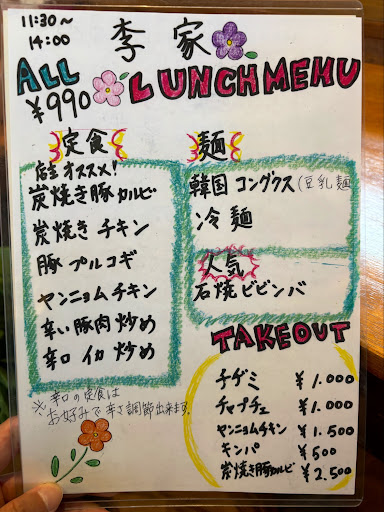 11:30~
14:00
李家
ALL
¥990
LUNCH MEMU
定食
店主オススメ!
炭焼き豚カルビ
炭焼きチキン
豚プルコギ
ヤンニョムチキン
辛い豚肉炒め
辛口イカ炒め
※辛口の定食は
お好みで辛さ調節出来ます.
麺
韓国コングクス(豆乳麺
冷麺
人気
石焼ビビンバ
TAKEOUT
チヂミ ¥1.000
チャプチェ ¥1.000
ヤンニョムチキン ¥1.500
キンパ ¥500
炭焼き豚カルビ ¥2.500